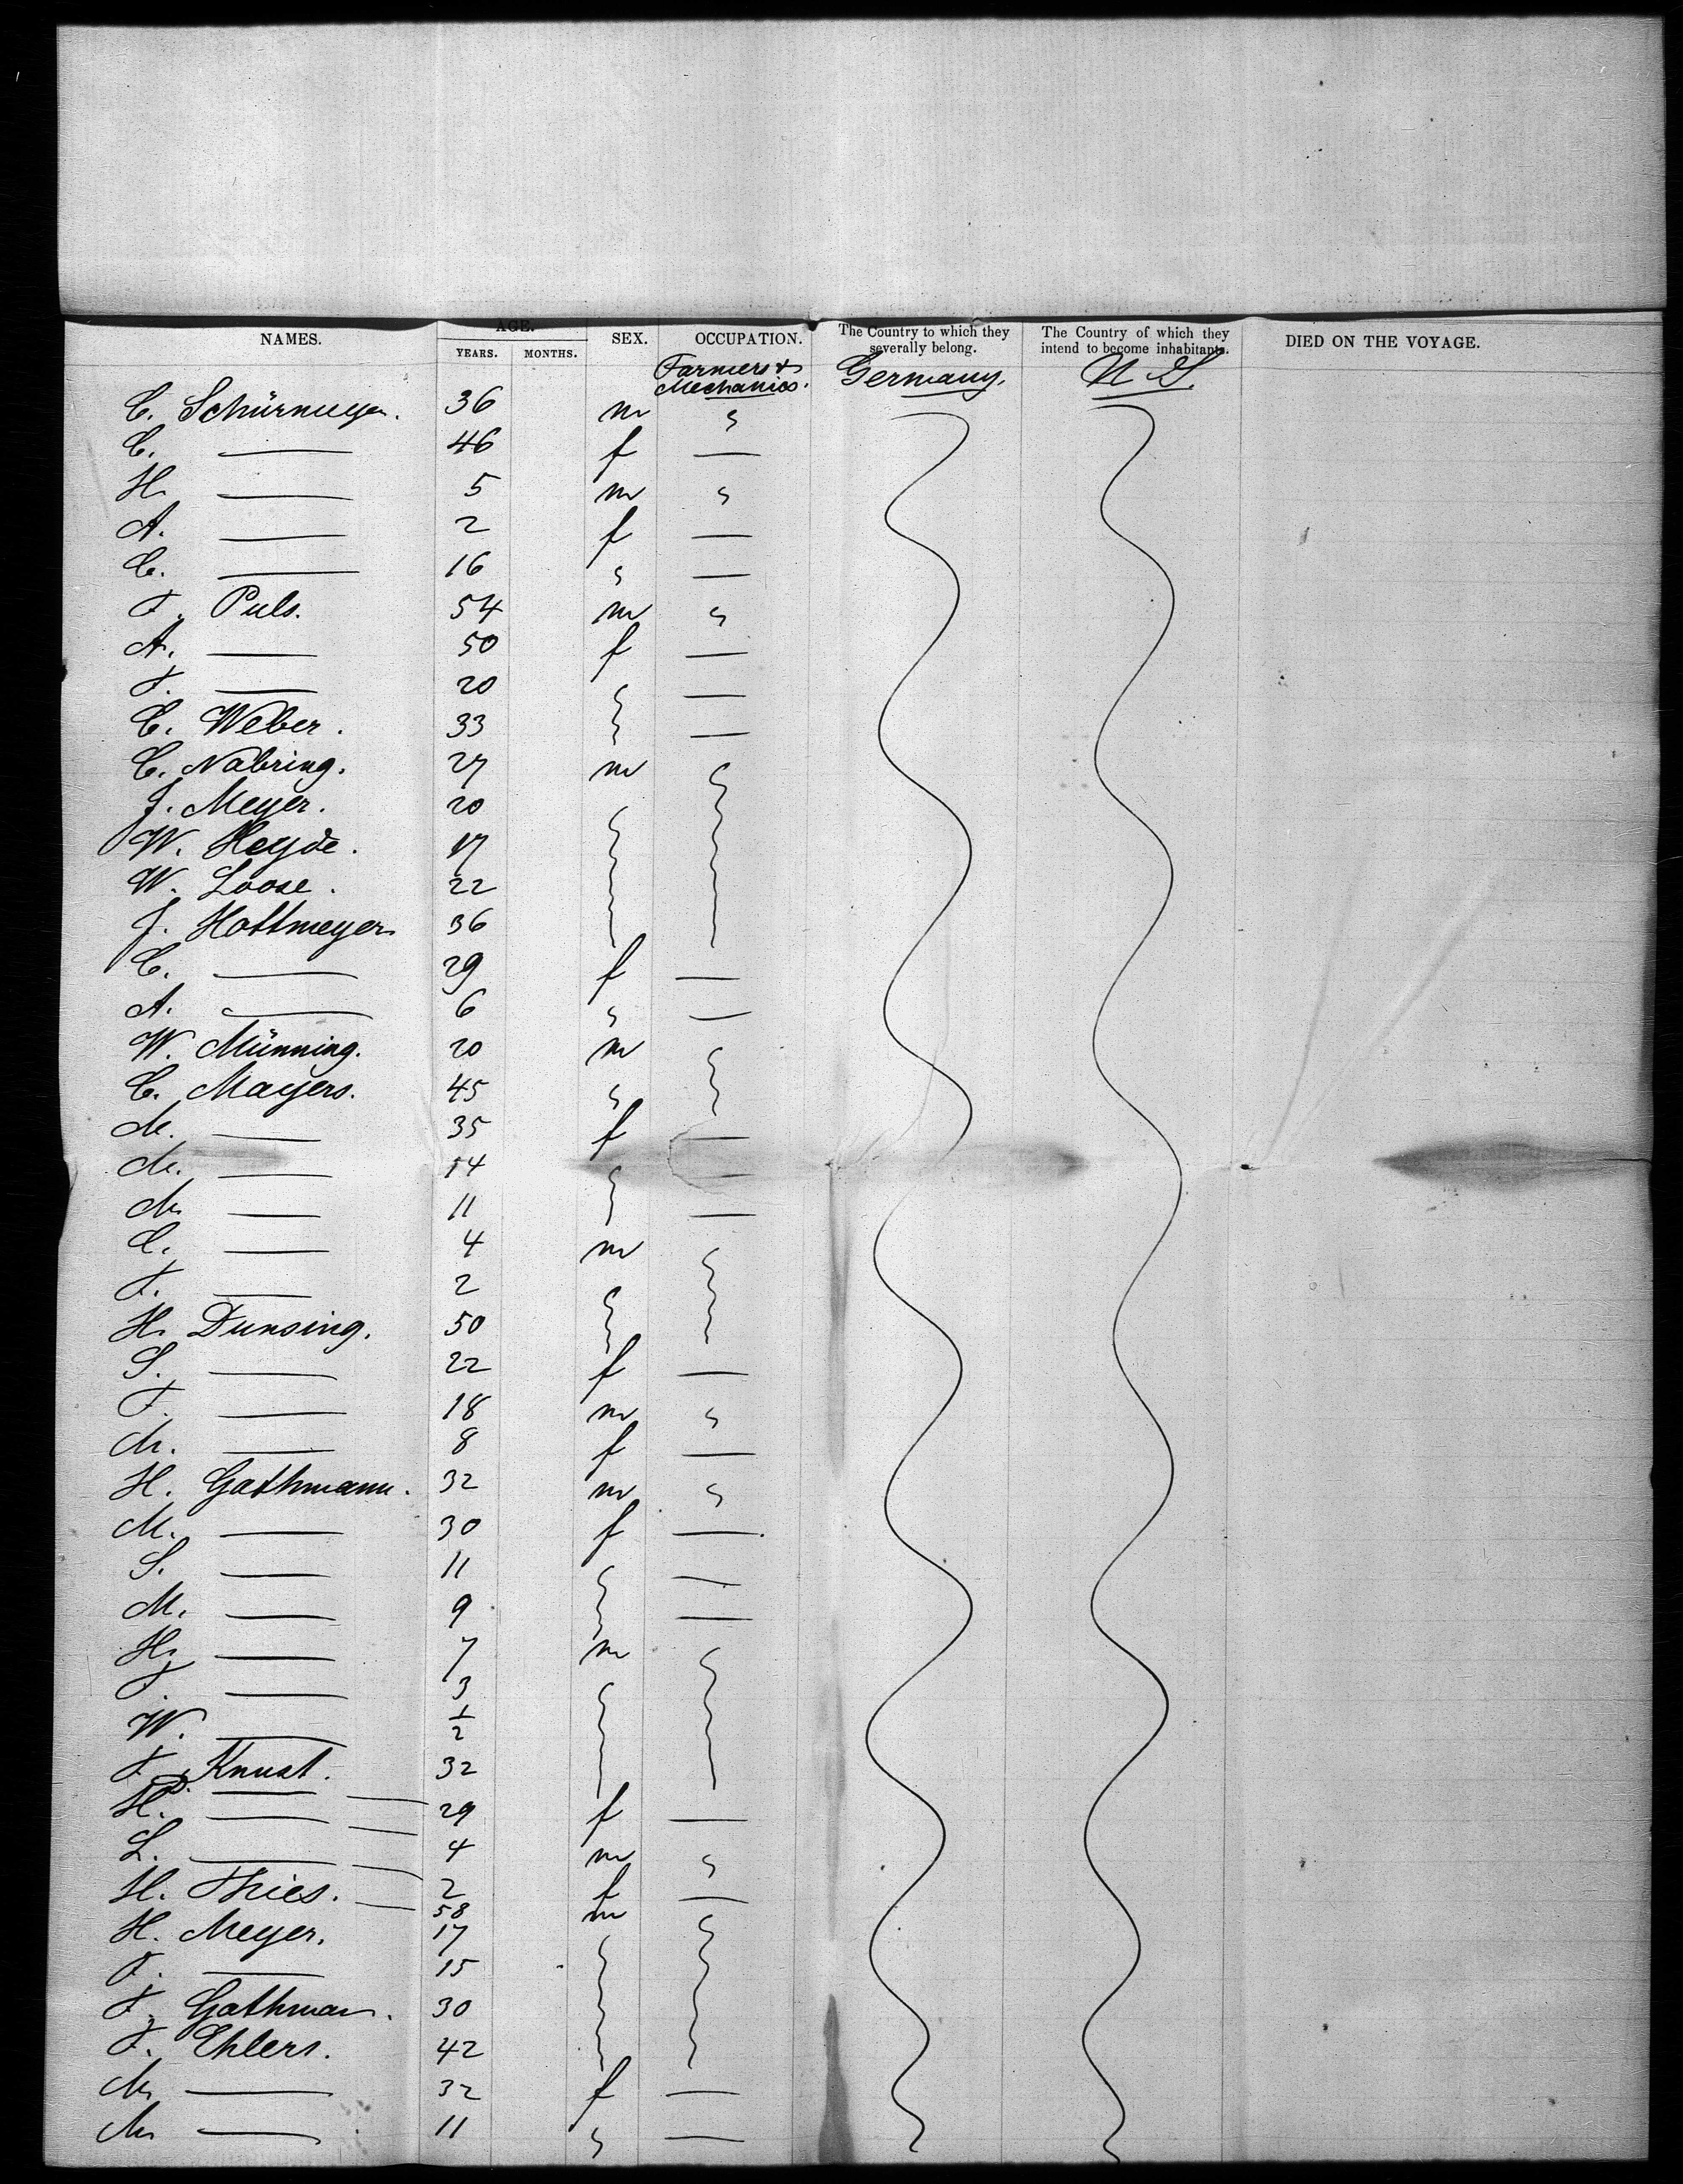 NAMES. AGE. SEX. OCCUPATION. The Country to which they severally belong. The Country of which they intend to become inhabitants. DIED ON THE VOYAGE.
YEARS. MONTHS.
Farmers & Mechanics. Germany. U S.
C. Schürmeyer. 36 m "
C. — 46 f —
H — 5 m "
A. — 2 f —
C. — 16 " —
F. Puls. 54 m "
A. — 50 f —
F. — 20 —
C. Weber. 33 —
C. Nabring. 27 m
J. Meyer. 20
W. Heyde. 17
W. Loose. 22
J. Hottmeyer 36
C. — 29 f —
A. — 6 " —
W. Münning. 20 m
C. Mayers. 45 "
M. — 35 f —
M. — 14 —
M — 11 —
C. — 4 m
F. — 2
H. Dunsing. 50
S. — 22 f —
F. — 18 m "
M. — 8 f —
H. Gathmann. 32 m "
M. — 30 f —
S. — 11 —
M. — 9 —
H. — 7 m
F. — 3
W. — 1/2
F. Knust. 32
D. — 29 f —
H. — 4 m "
L. — 2 f —
H. Thies. 58 m
H. Meyer. 17
F. — 15
F. Gathman. 30
F. Ehlers. 42
M — 32 f —
M — 11 " —